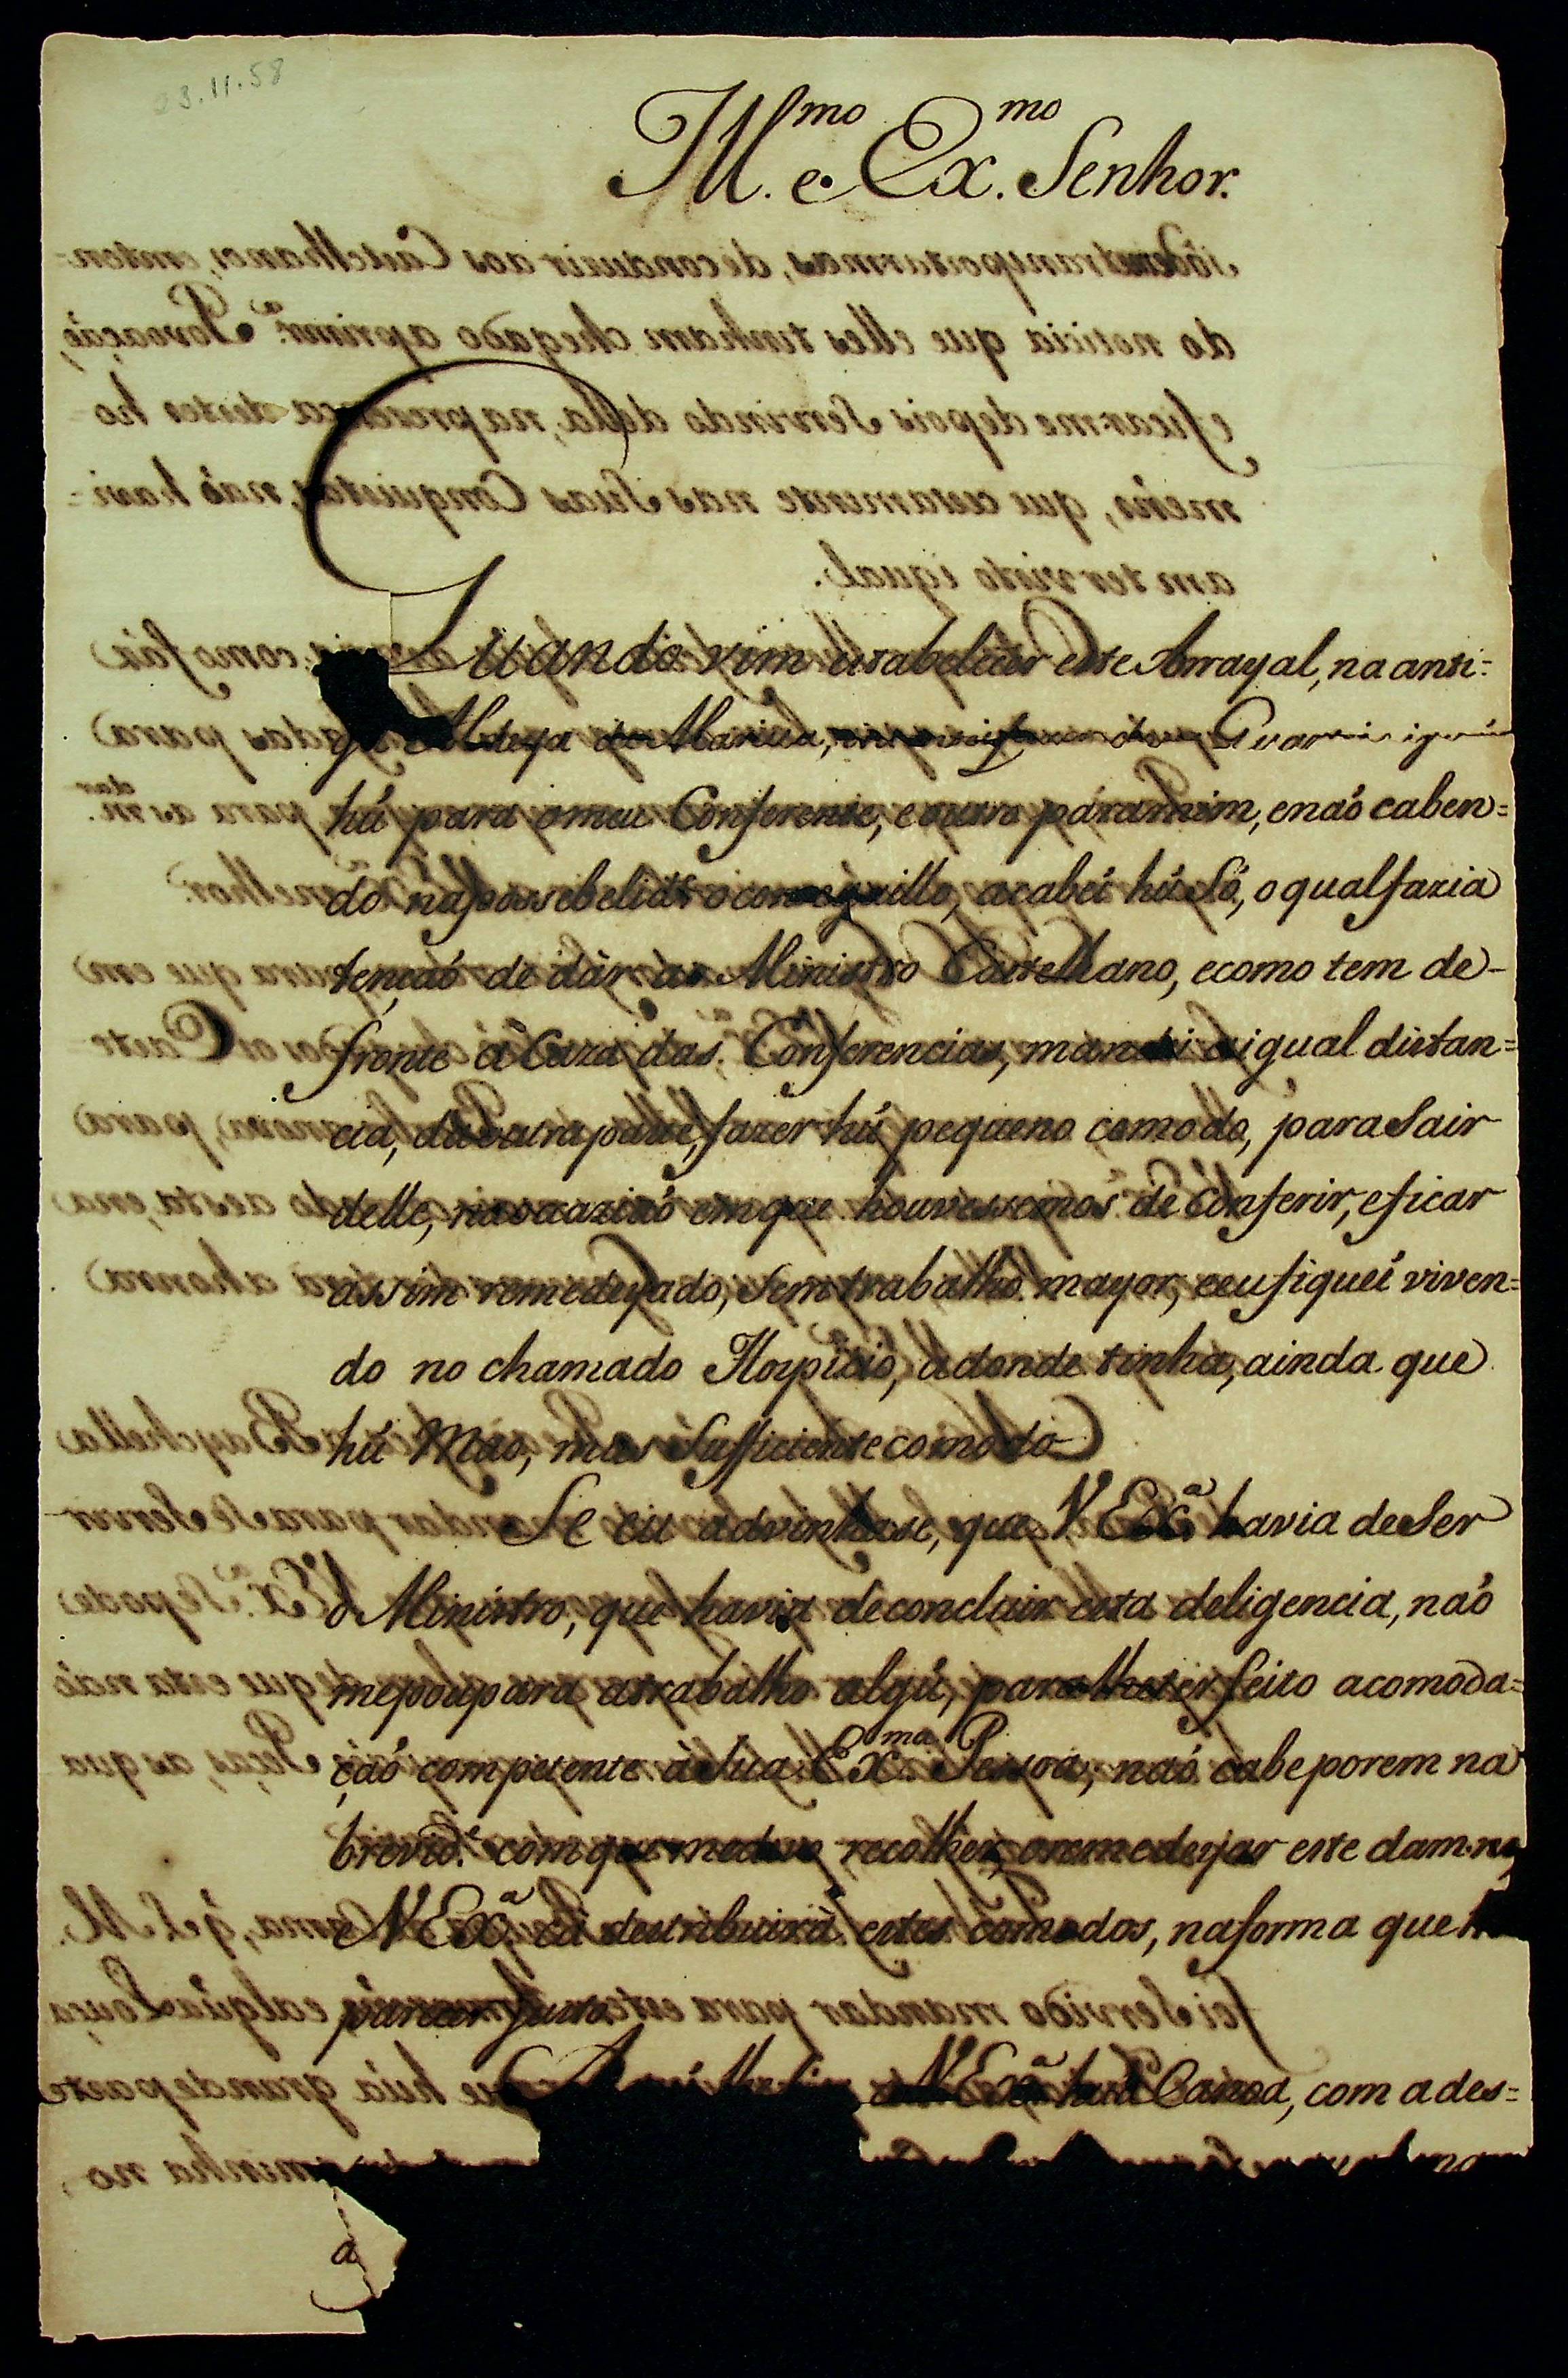 03.11.58
Ill.mo e Ex.mo Senhor.
Quando vim estabelecer este Arrayal, na anti=
ga Aldeya de Mariua,
hú para o meu Conferente, e outro para mim, e naó caben=
do na possebelidᵉ o conseguillo, acabei hú Só, o qual fazia
tençaó de dár ao Ministro Castelhano, e como tem de-
fronte á Caza das Conferencias, mandei a igual distan=
cia, da outra parte, fazer hú pequeno comodo, para Sair
delle, na ocaziaó em que houvessemos de Conferir, e ficar
assim remedeyado, Sem trabalho mayor, e eu fiquei viven=
do no chamado Hospicio, adonde tinha, ainda que
hú Mao, mas Sufficiente comodo
Se eu advinhase, que V. Ex.ª havia de Ser
o Ministro, que havia de concluir esta deligencia, naó
me poupara a trabalho algú, para lhe ter feito acomoda=
çaó competente á Sua Ex.ma Pessoa; naó cabe porem na
brevid.ᵉ com que me devo recolher, o remedeyar este damno,
e V. Ex.ª cá destribuirá estes comodos, na forma que
parecer justo.
a V. Ex.ª húa Canoa, com a des=
a